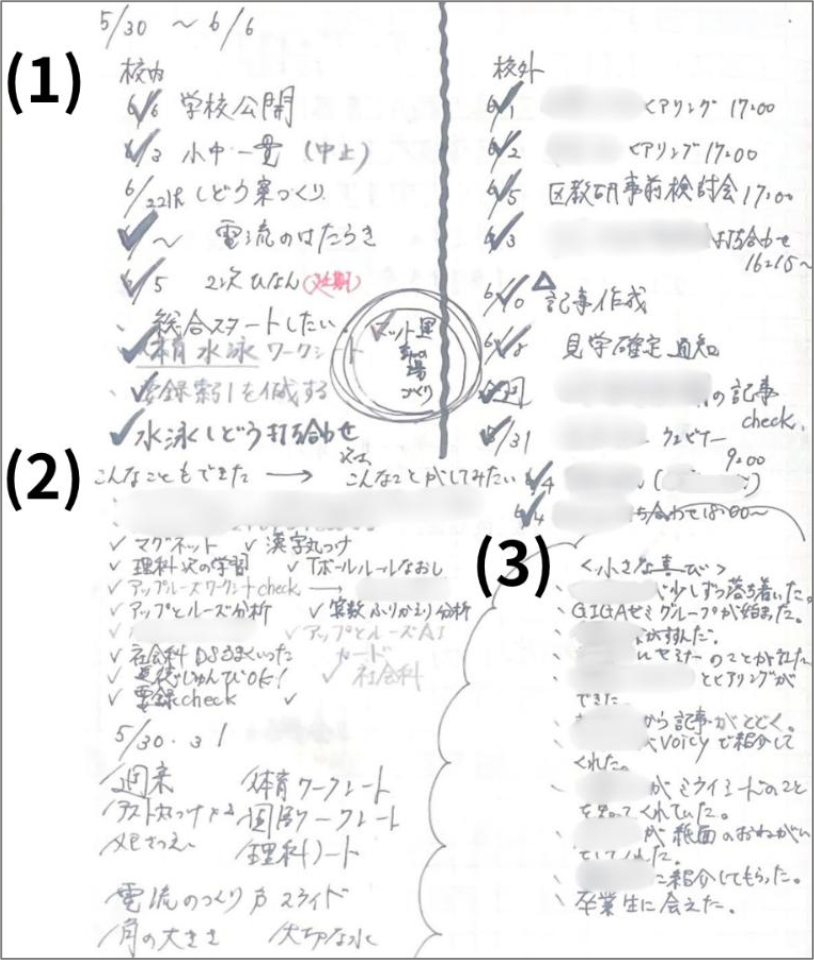 5/30 ～ 6/6
(1)
校内
6/6 学校公開
6/3 小中一貫(中止)
6/22は しどう案づくり
～ 電流のはたらき
6/5 2次ひなん(延期)
総合スタートしたい
体育 水泳 ワークシート
要録索引を作成する
水泳しどう打ち合わせ
づくり
校外
6/1 ヒアリング 17:00
6/2 ヒアリング 17:00
6/5 区教研事前検討会 17:00
6/3 打ち合わせ
16:15～
6/10 記事作成
見学確定通知
の記事
check
5/31 ウェビナー
9:00
6/4
6/4 ち合わせ18:00～
(2)
こんなこともできた → こんなことがしてみたい
マグネット 漢字丸つけ
理科 次の学習 Tボールルールなおし
アップルーズワークシートcheck →
アップとルーズ分析 算数ふりかえり分析
アップとルーズAI
カード
社会科 うまくいった
じゅんびOK! 社会科
要録check
5/30.31
週案 体育ワークシート
テスト丸つけ 国語ワークシート
理科ノート
電流のつくり方 スライド
角の大きさ 大切な水
(3)
<小さな喜び>
少しずつ落ち着いた。
GIGAゼミグループが始まった。
がすすんだ。
セミナーのことが
とヒアリングが
できた。
から記事がとどく。
Voicyで紹介して
くれた。
がミライシードのこと
を知ってくれていた。
が紙面のおねがい
をしてくれた。
に紹介してもらった。
卒業生に会えた。